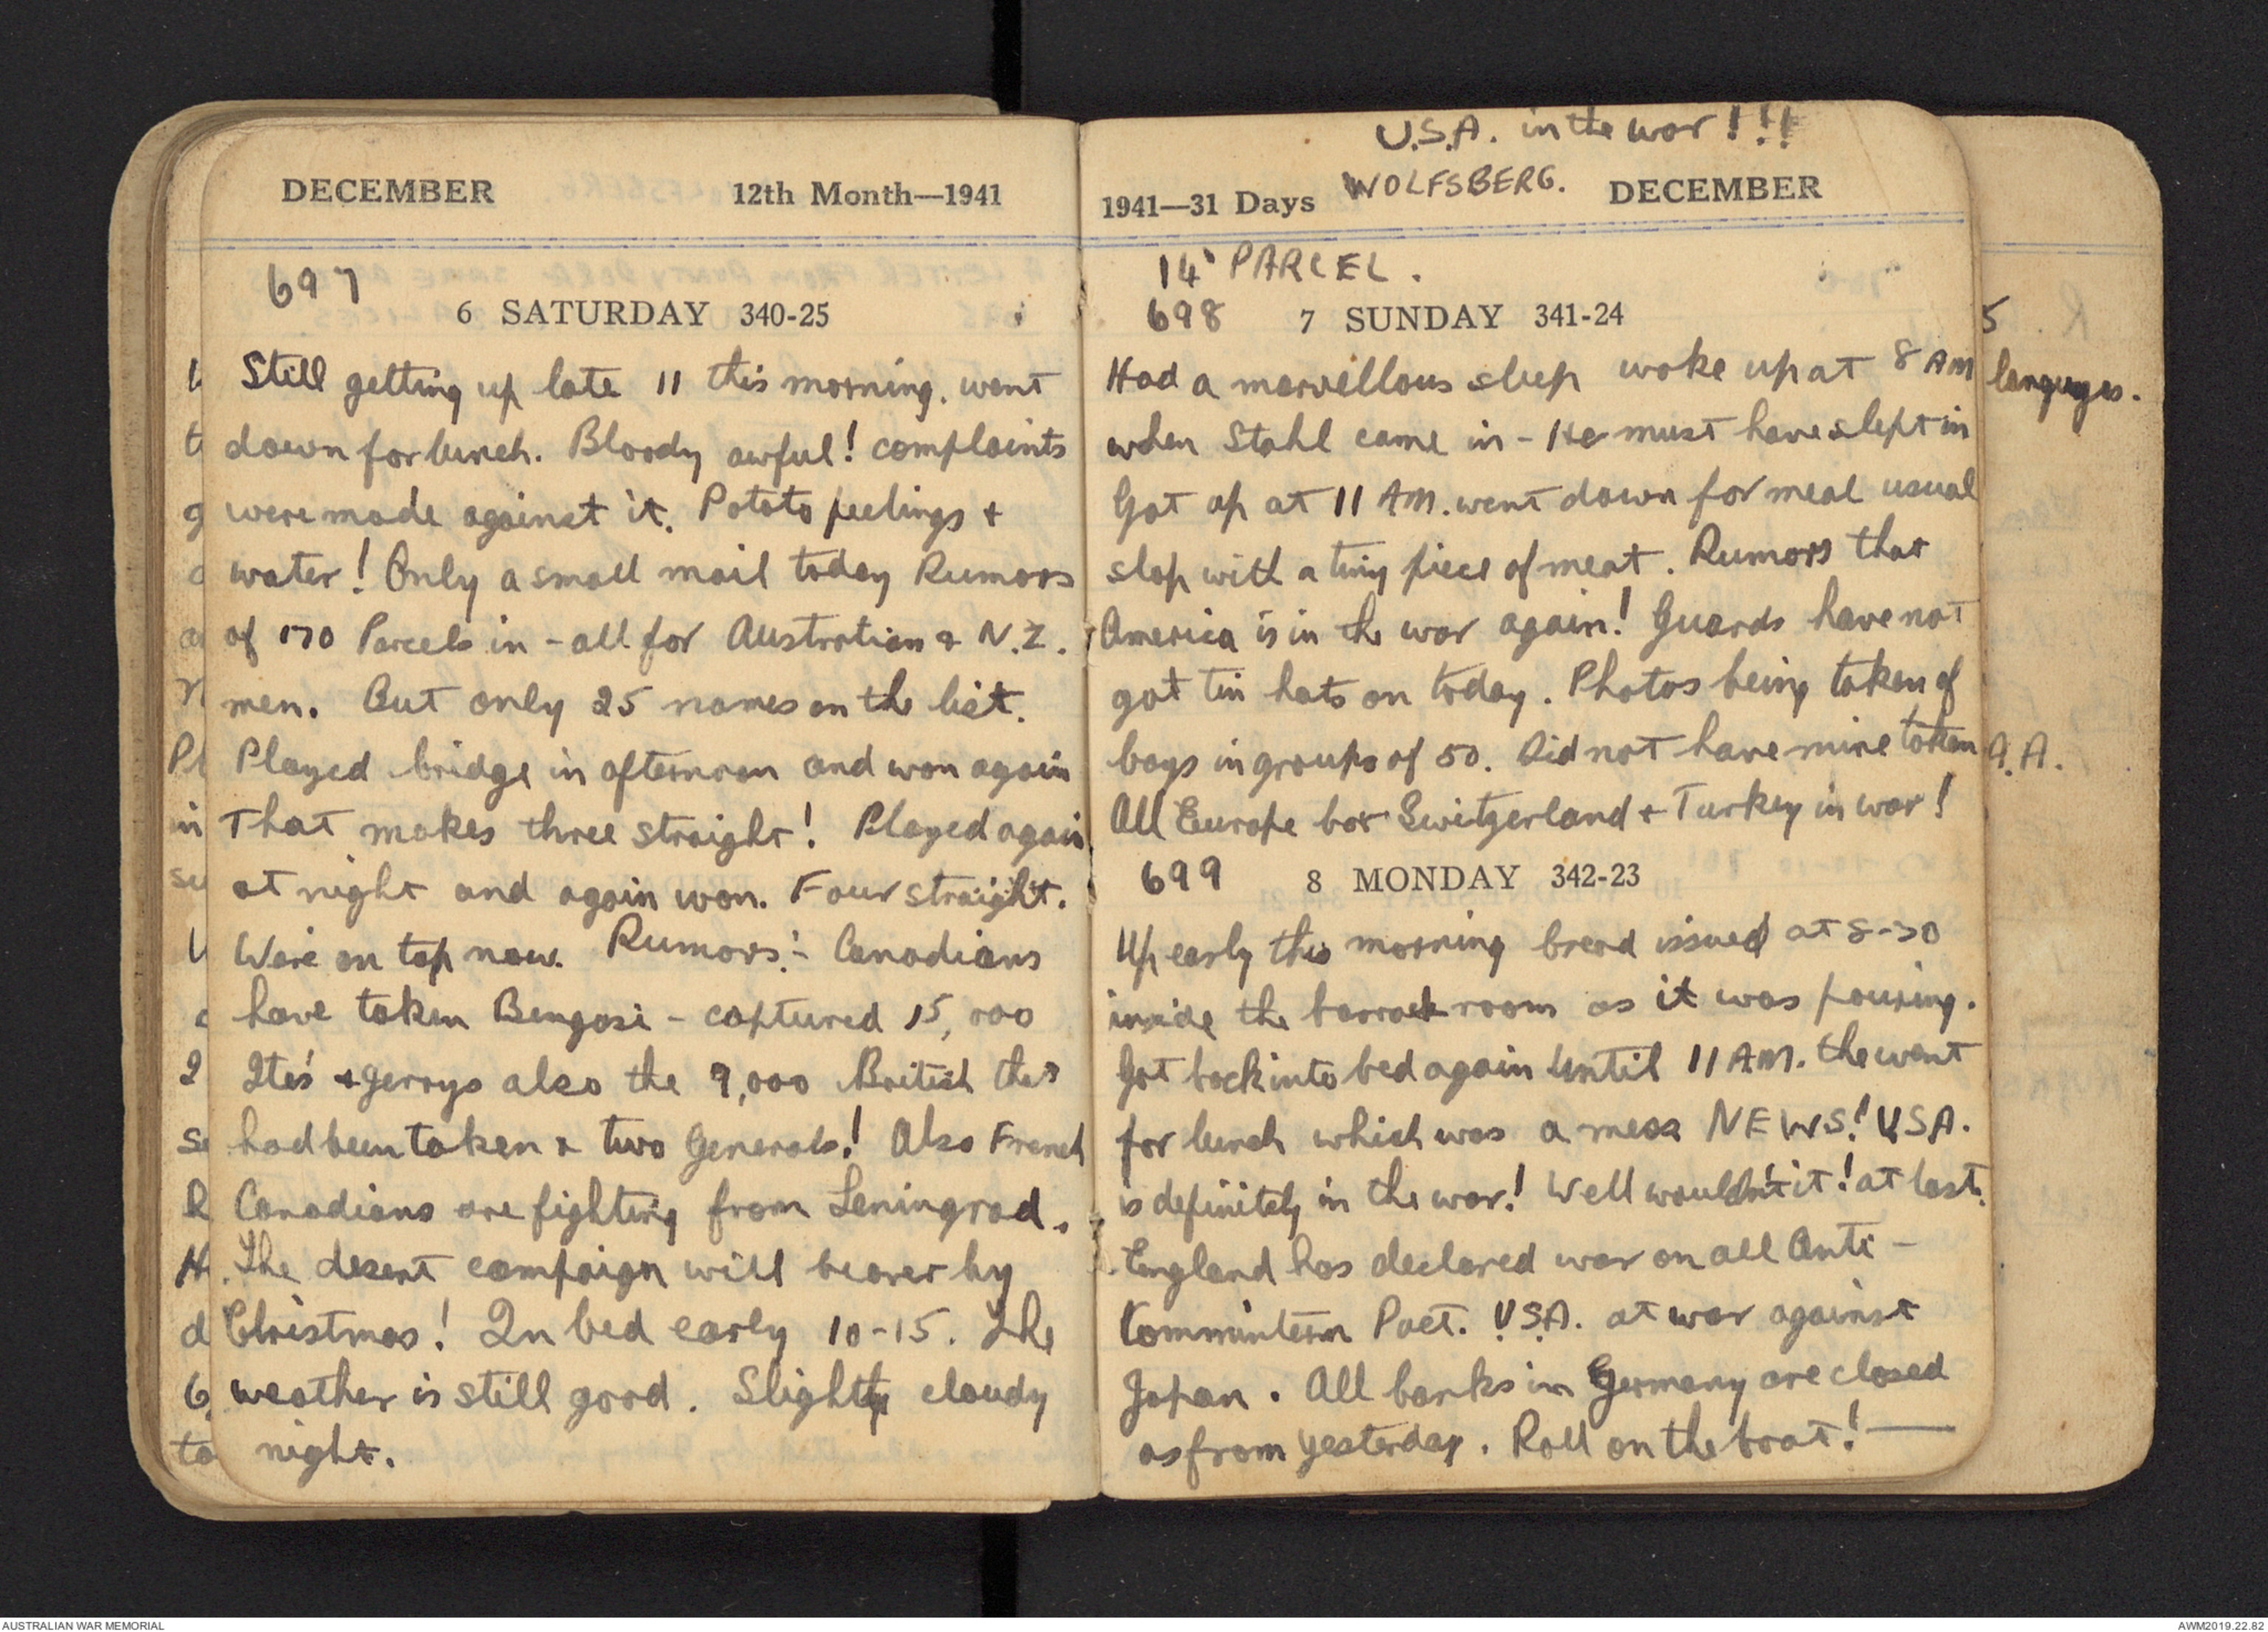 DECEMBER 12th Month—1941
697
6 SATURDAY 340-25
Still getting up late 11 this morning. went
down for lunch. Bloody awful! complaints
were made against it. Potato peelings +
water! Only a small mail today Rumors
of 170 Parcels in - all for Australian & N.Z.
men. But only 25 names on the list.
Played bridge in afternoon and won again
That makes three straight! Played again
at night and again won. Four straight.
We're on top now. Rumors:- Canadians
have taken Bengasi - captured 15,000
Ites' + Gerrys also the 9,000 British that
had been taken & two Generals! Also French
Canadians are fighting from Leningrad.
The desert campaign will be over by
Christmas! In bed early 10-15. The
weather is still good. Slightly cloudy
night.
U.S.A. in the war!!!
1941—31 Days WOLFSBERG. DECEMBER
14' PARCEL.
698 7 SUNDAY 341-24
Had a marvellous sleep woke up at 8 AM
when Stahl came in - He must have slept in
Got up at 11 AM. went down for meal usual
slop with a tiny piece of meat. Rumors that
America is in the war again! Guards have not
got tin hats on today. Photos being taken of
boys in groups of 50. Did not have mine taken
All Europe bar Switzerland + Turkey in war!
699 8 MONDAY 342-23
Up early this morning bread issued at 8-30
inside the barrack room as it was pouring.
Got back into bed again until 11 AM. the went
for lunch which was a mess NEWS! USA.
is definitely in the war! Well wouldn't it! at last.
England has declared war on all Anti-
Commintern Pact. U.S.A. at war against
Japan. All banks in Germany are closed
as from yesterday. Roll on the boat!—
languages.
AUSTRALIAN WAR MEMORIAL
AWM2019.22.82